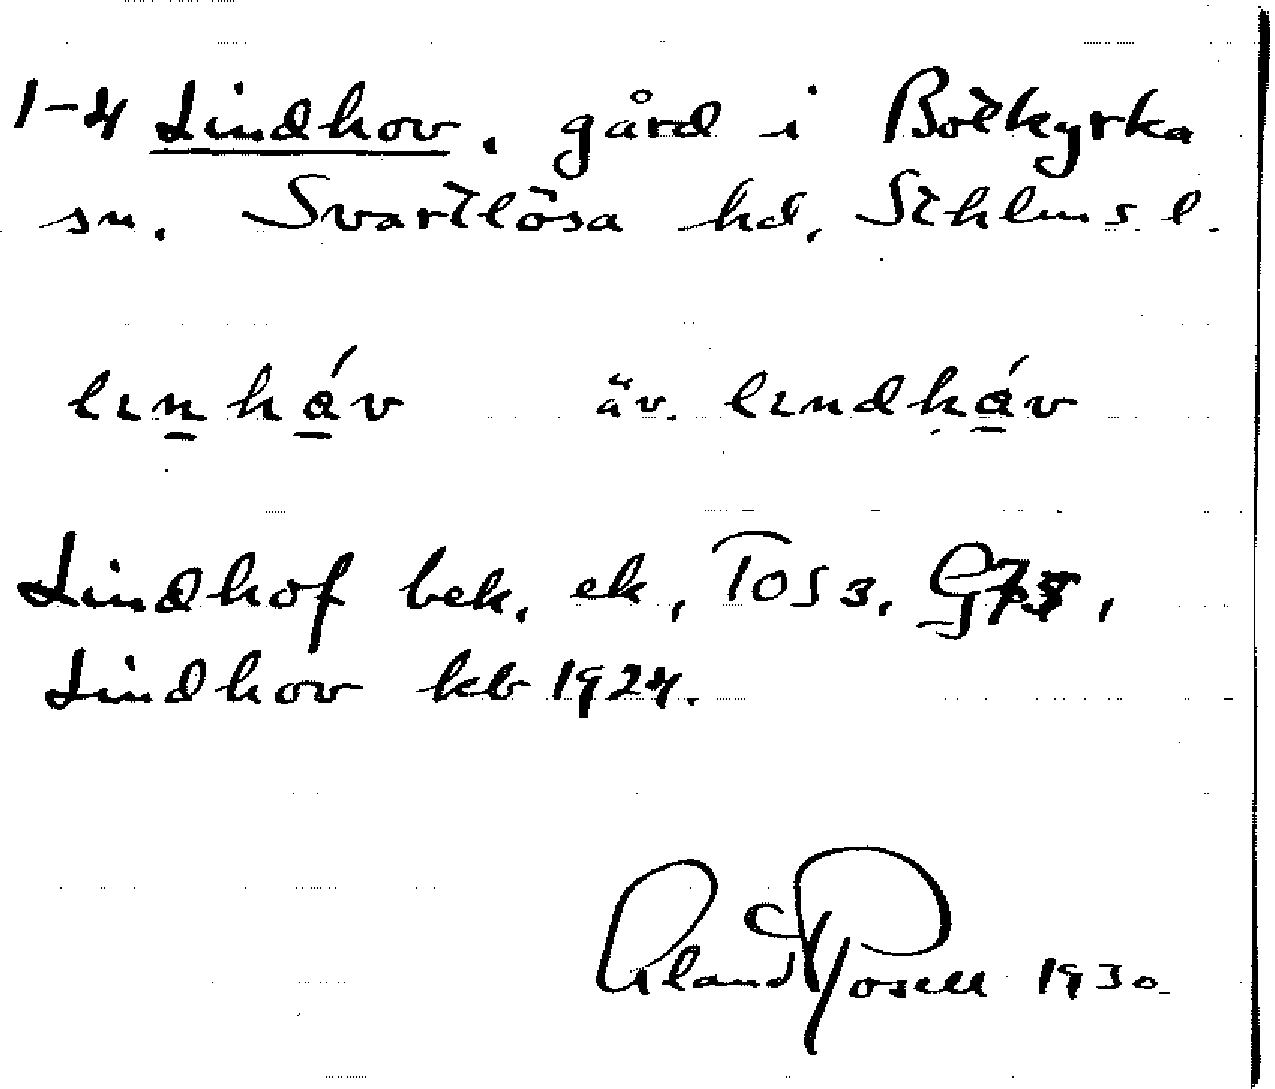 1-4 Lindhov. gård i Botkyrka
sn. Svartlösa hd, Sthlms l.
lınháv äv. lındháv
Lindhof bek. ek, Top 3,
Lindhov kb 1924.
Erland Rosell 1930.